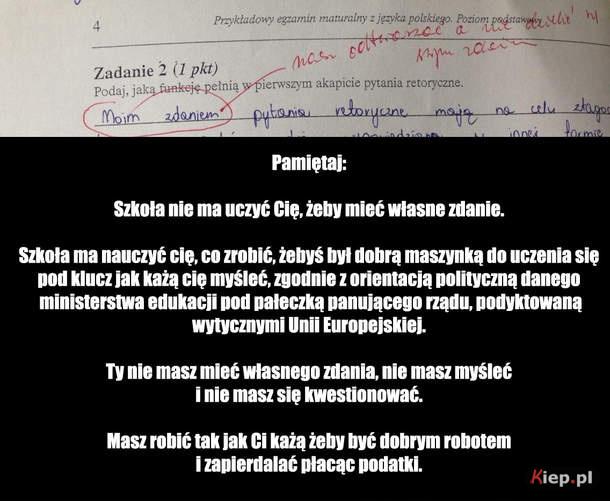 4
Przykładowy egzamin maturalny z języka polskiego. Poziom podstawowy
masz odtwarzać a nie dzielić
swym zdaniem
Zadanie 2 (1 pkt)
Podaj, jaką funkcję pełnią w pierwszym akapicie pytania retoryczne.
Moim zdaniem pytania retoryczne mają na celu
innej formie
Pamiętaj:
Szkoła nie ma uczyć Cię, żeby mieć własne zdanie.
Szkoła ma nauczyć cię, co zrobić, żebyś był dobrą maszynką do uczenia się
pod klucz jak każą cię myśleć, zgodnie z orientacją polityczną danego
ministerstwa edukacji pod pałeczką panującego rządu, podyktowaną
wytycznymi Unii Europejskiej.
Ty nie masz mieć własnego zdania, nie masz myśleć
i nie masz się kwestionować.
Masz robić tak jak Ci każą żeby być dobrym robotem
i zapierdalać płacąc podatki.
Kiep.pl